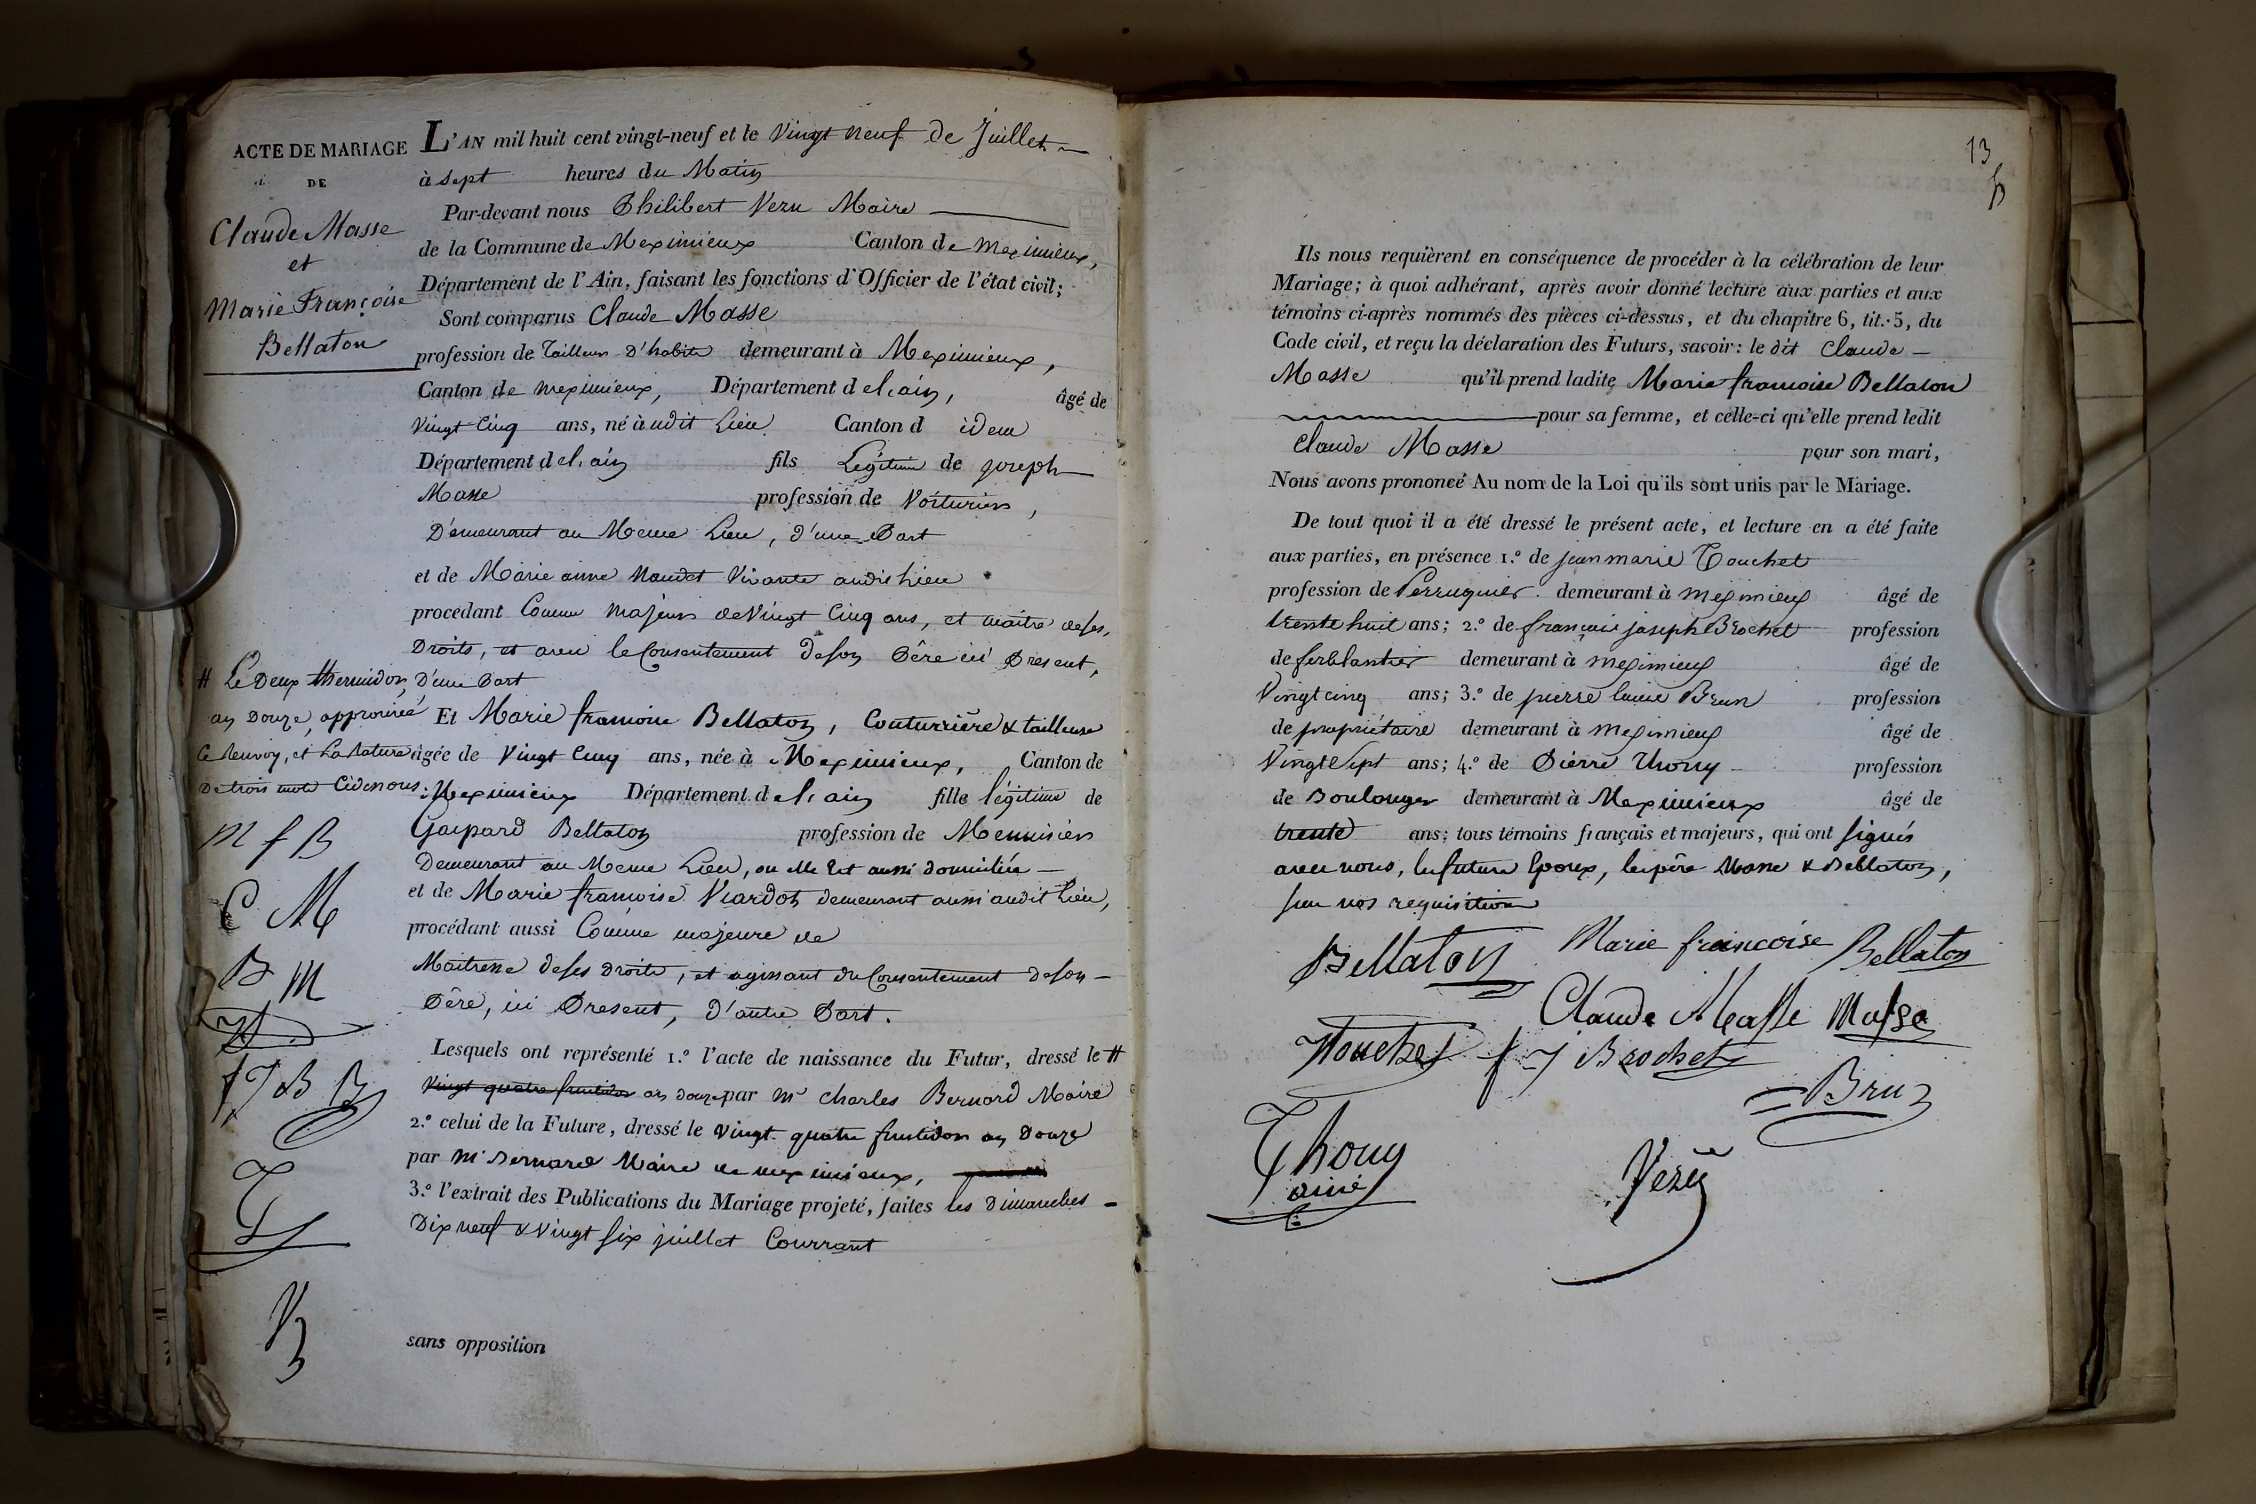 ACTE DE MARIAGE
DE
Claude Masse
et
Marie Françoise
Bellaton
L'AN mil huit cent vingt-neuf et le Vingt neuf de Juillet
à sept heures du Matin
Par-devant nous Philibert Vezu Maire
de la Commune de Meximieux Canton de meximieux,
Département de l'Ain, faisant les fonctions d'Officier de l'état civil;
Sont comparus Claude Masse
profession de Tailleur d'habits demeurant à Meximieux,
Canton de meximieux, Département de l'ain, âgé de
Vingt Cinq ans, né audit Lieu Canton d idem
Département de l'ain fils Légitime de joseph
Masse profession de Voiturier,
Demeurant au Meme Lieu, d'une Part
et de Marie anne Naudet Vivante audit Lieu
procédant Comme Majeur de Vingt Cinq ans, et maitre de ses,
Droits, et avec le Consentement de son Père ici Present,
D'une Part
# Le Deux thermidor
an Douze, approuvée
Ce Renvoy, et La Rature
De trois mots Cidessous.
M f B
C M
B M
fJB B
T
V
Et Marie framoise Bellaton, Couturrière & tailleuse
âgée de Vingt Cinq ans, née à Meximieux, Canton de
Meximieux Département de l'ain fille légitime de
Gaspard Bellaton profession de Menuisier
Demeurant au Meme Lieu, ou elle Est aussi domiciliée
et de Marie framoise Viardot demeurant aussi audit Lieu,
procédant aussi Comme majeure de
Maitresse de ses Droits, et agissant du Consentement de son
Père, ici Present, d'autre Part.
Lesquels ont représenté 1.º l'acte de naissance du Futur, dressé le #
Vingt quatre fructidor an douze par Mr Charles Bernard Maire
2.º celui de la Future, dressé le Vingt quatre fructidor an Douze
par Mr Bernard Maire de meximieux,
3.º l'extrait des Publications du Mariage projeté, faites les Dimanches
Dix neuf & Vingt six juillet Courrant
sans opposition
13
Ils nous requièrent en conséquence de procéder à la célébration de leur
Mariage; à quoi adhérant, après avoir donné lecture aux parties et aux
témoins ci-après nommés des pièces ci-dessus, et du chapitre 6, tit. 5, du
Code civil, et reçu la déclaration des Futurs, savoir: le dit Claude
Masse qu'il prend ladite Marie framoise Bellaton
pour sa femme, et celle-ci qu'elle prend ledit
Claude Masse pour son mari,
Nous avons prononcé Au nom de la Loi qu'ils sont unis par le Mariage.
De tout quoi il a été dressé le présent acte, et lecture en a été faite
aux parties, en présence 1.º de jean marie Touchet
profession de Perruquier demeurant à meximieux âgé de
trente huit ans; 2.º de françois joseph Brochet profession
de ferblantier demeurant à meximieux âgé de
Vingt cinq ans; 3.º de pierre louis Brun profession
de propriétaire demeurant à meximieux âgé de
Vingt Sept ans; 4.º de Pierre Thouy profession
de Boulanger demeurant à Meximieux âgé de
trente ans; tous témoins français et majeurs, qui ont signés
avec nous, les future Epoux, les père Masse & Bellaton,
sur nos requisition
Bellaton Marie francoise Bellaton
Claude Masse Masse
Touchet f J Brochet
Brun
Thouy
ainé
Vezu